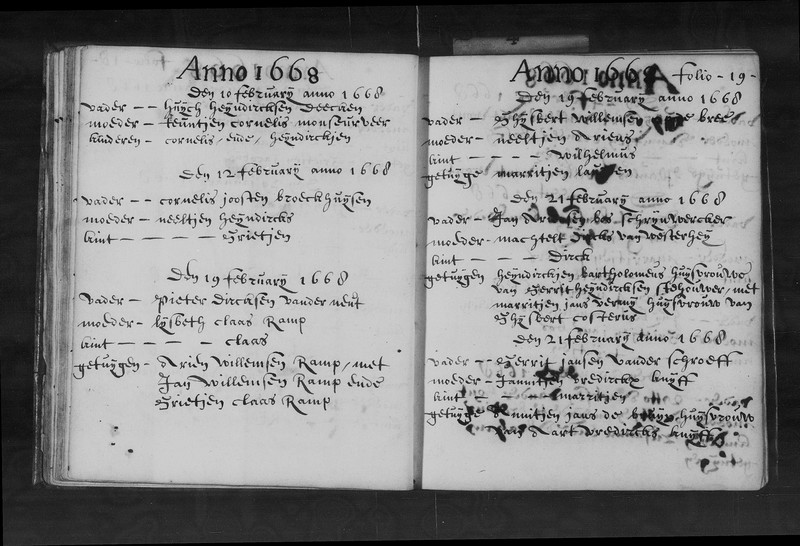 Anno 1668
Den 10 february anno 1668
vader - - huych heyndircksen
moeder - - cornelis monseurweer
kinderen - cornelis, ende, heyndirckjen
Den 12 february anno 1668
vader - - cornelis joosten broeckhuysen
moeder - neeltjen heyndircks
kint - - - - Grietjen
Den 19 february 1668
vader - Pieter Dircksen vander neut
moeder - lysbeth claas Ramp
kint - - - - claas
getuygen - Arien willemsen Ramp, met
Jan willemsen Ramp ende
Grietjen claas Ramp
Anno 1668 folio - 19 -
Den 19 february anno 1668
vader - Ghysbert willemsen bree
moeder - neeltjen Ariens
kint - - - - wilhelmus
getuyge marritjen
Den 21 february anno 1668
vader - Jan schrynwercker
moeder - machtelt Dircks van westerhey
kint - - - - Dirck
getuygen heyndirckjen bartholomeus huysvrouwe
van Gerrit heyndircksen stehouwer, met
marritjen jans huysvrouw van
Ghysbert costerus
Den 21 february anno 1668
vader - Gerrit jansen vander schroeff
moeder - Dredirckx knyff
kint - - - - marritjen
getuyge jans de huysvrouw
van Aart Dredircks knyff